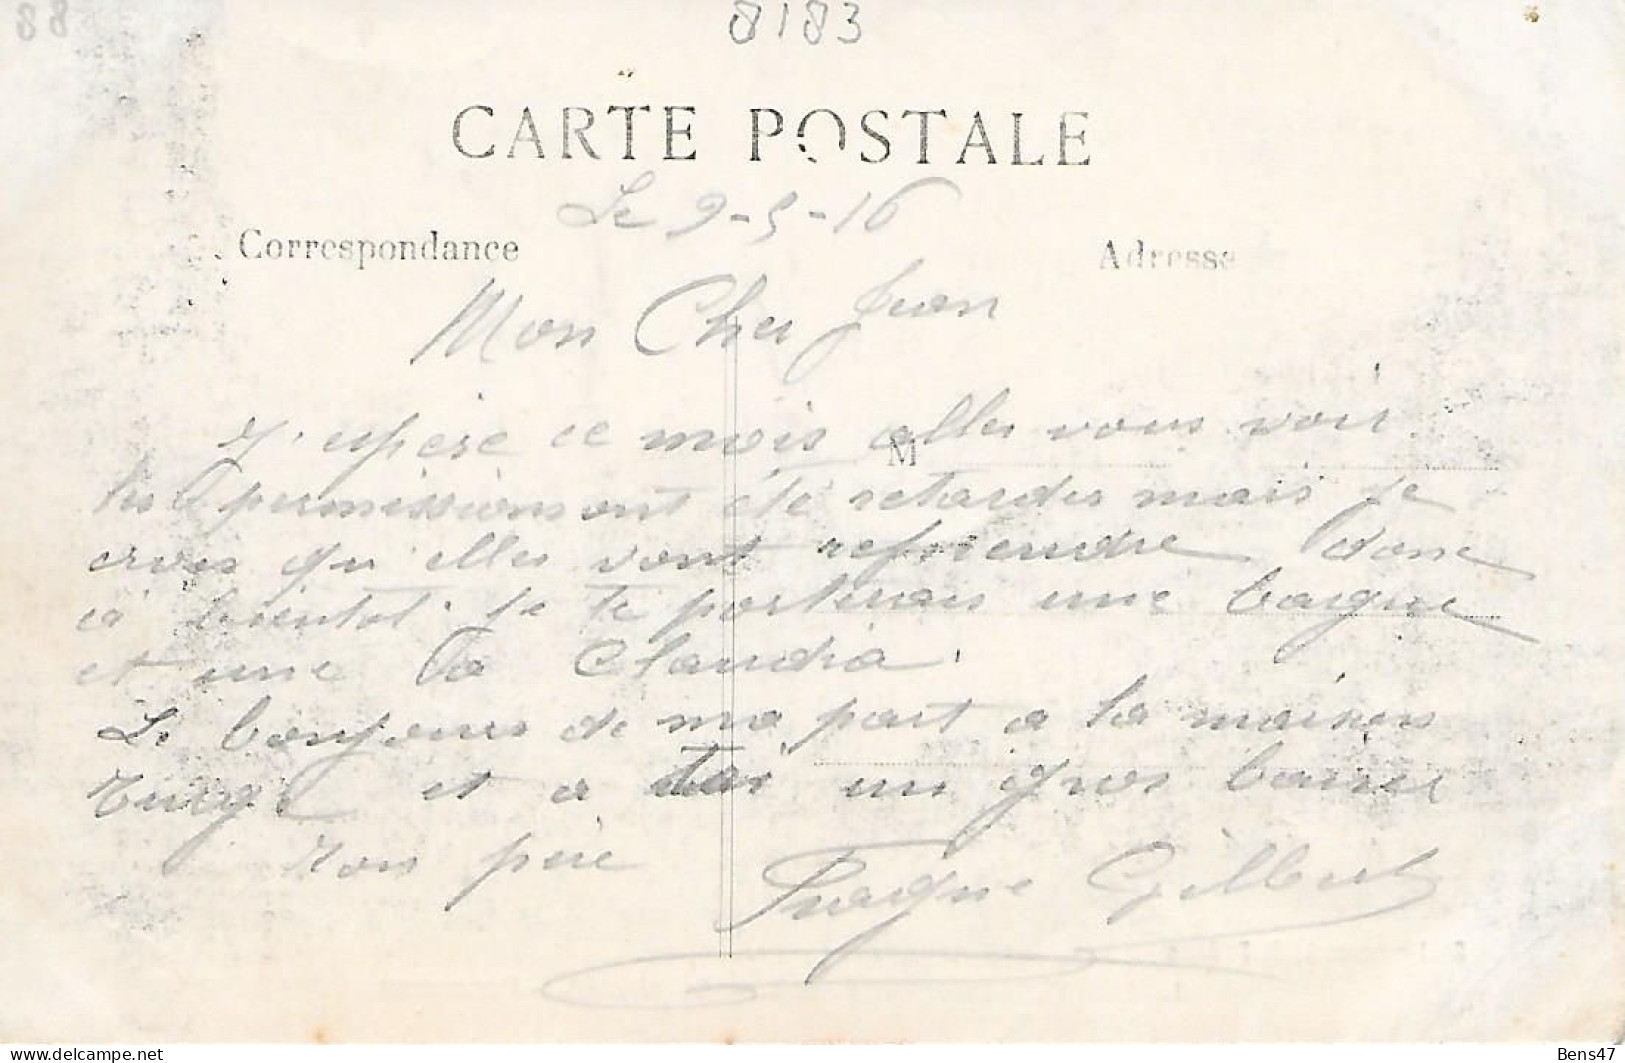 88
8183
CARTE POSTALE
Le 9-5-16
Correspondance
Adresse
Mon Cher Jean
J'espère ce mois aller vous voir
M
les permissions ont été retardés mais je
crois qu'elles vont reprendre donc
à bientot. Je te porterais une bague
et une a Claudia.
Le bonjour de ma part a la maison
et a toi un gros baiser
Ton père Gilbert
Bens47
www.delcampe.net